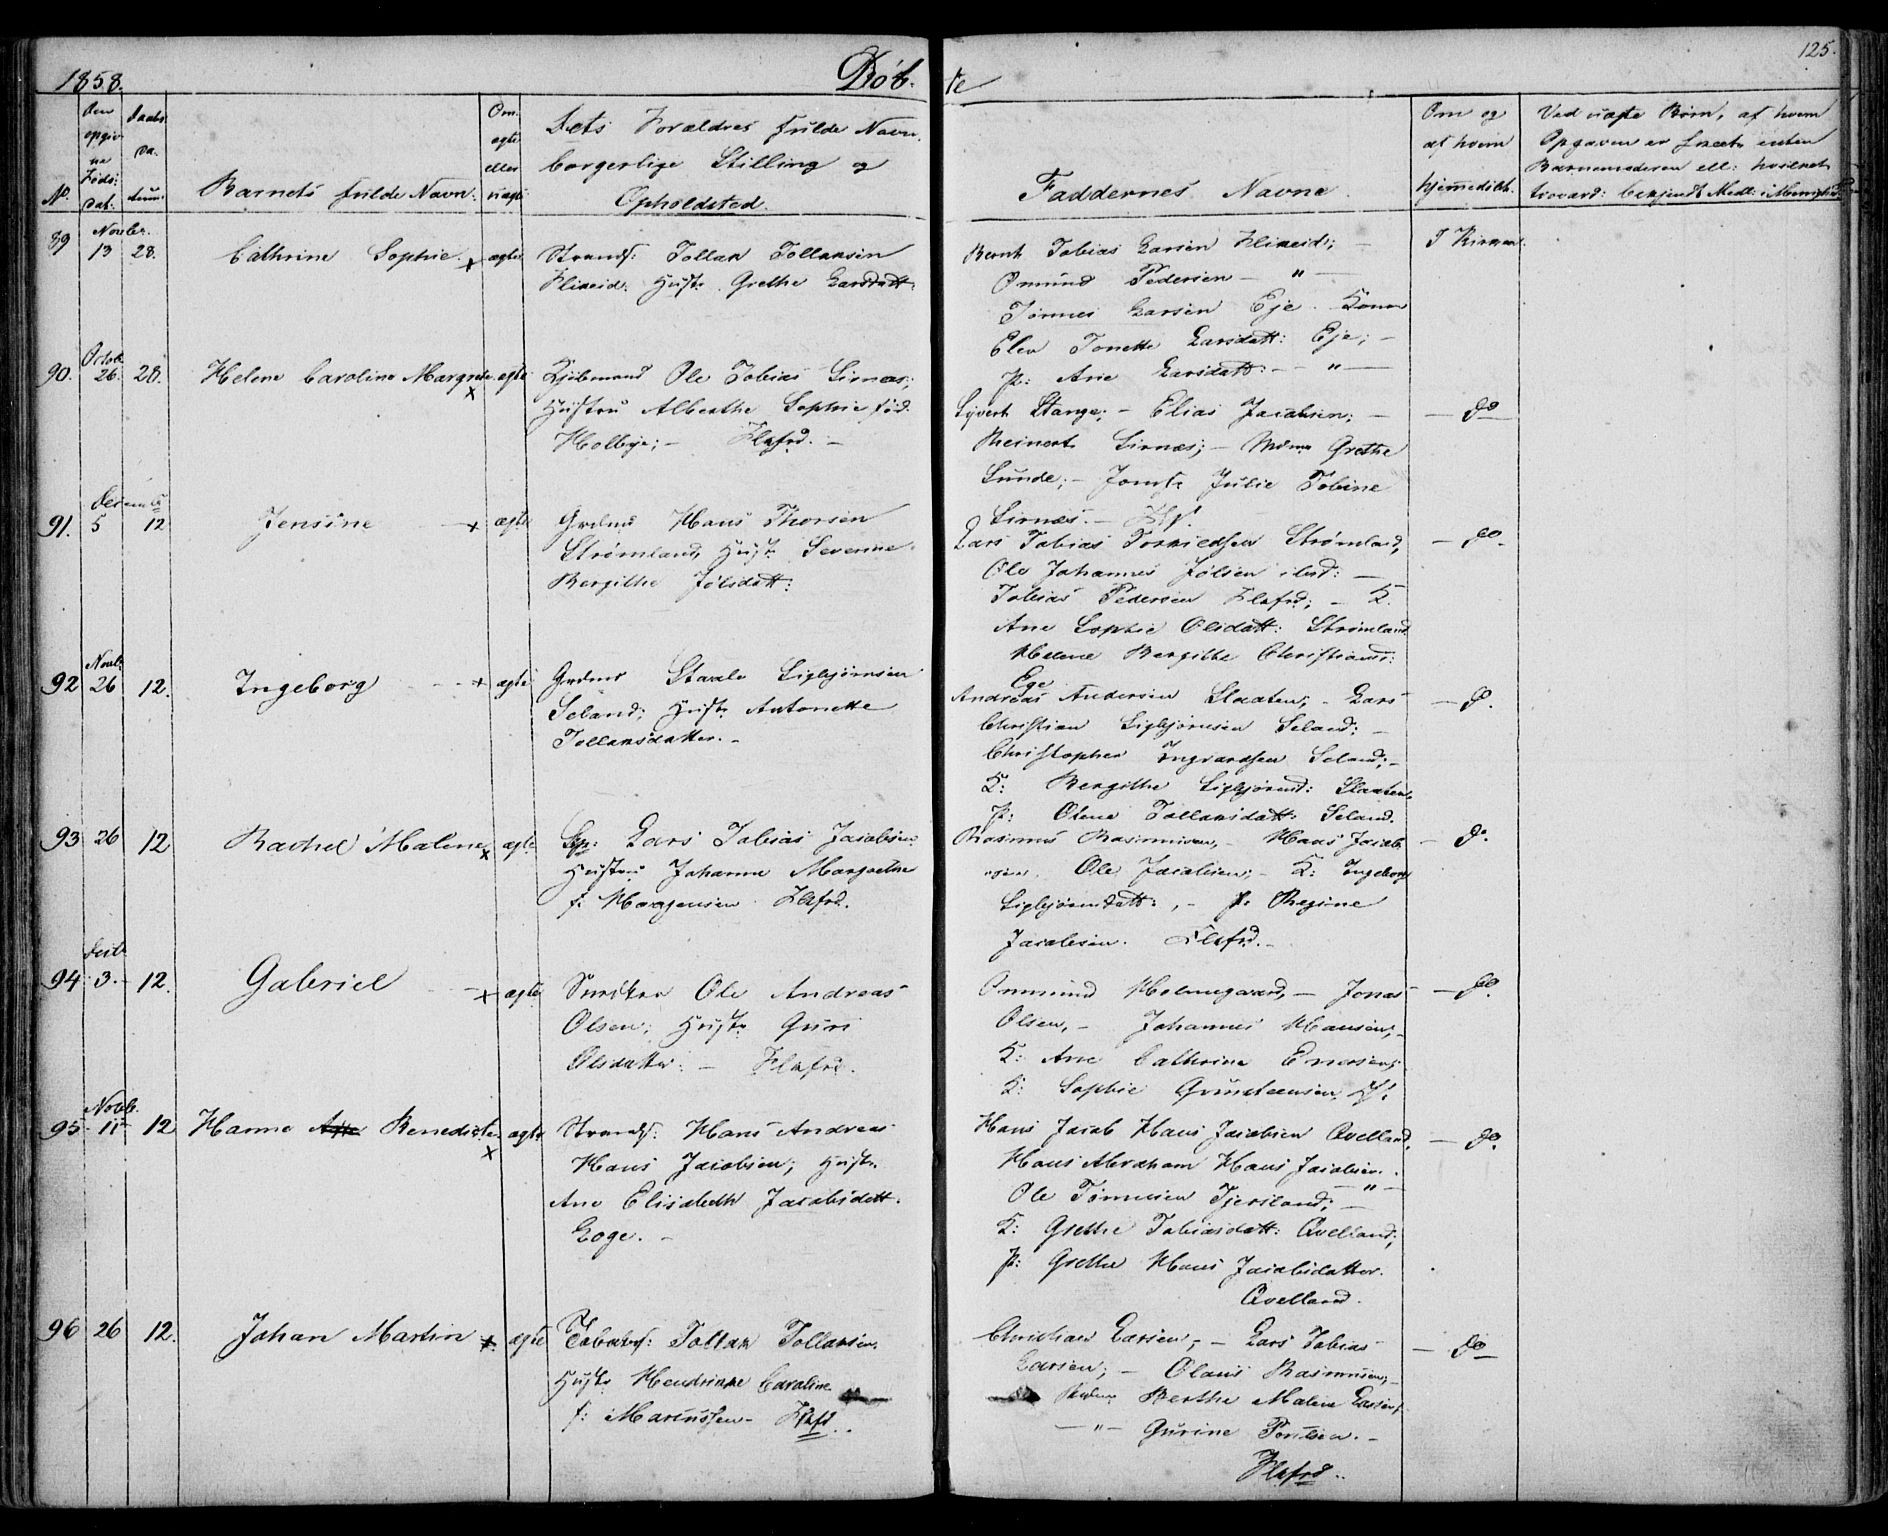 1858. Døb- te 125.
No. Den opgivne Føds: Dat: Daabs Datum Barnets fulde Navn. Om ægte eller uægte
Dets Forældres fulde Navn.
borgerlige Stilling og
Opholdsted.
Faddernes Navne
Om og
af hvem
hjemmedøbt.
Ved uægte Børn, af hvem
Opgaven er skeet enten
Barnemoderen ell: hvilket
troværd: bekjendt Medl: i Menigh:
89 Novbr. 13 28. Cathrine Sophie. x ægte Strands: Tollak Tollaksen
Flikeid: Hustr. Grethe Larsdatt:
Bernt Tobias Larsen Flikeid; - I Kirken.
Omund Pedersen - " -
Tønnes Larsen Eje. Kone
Elen Tonette Larsdatt: Eje; -
p: Ane Larsdatt: - " -
90. Octob. 26. 28. Helene Caroline Margrete x ægte Kjøbmand Ole Tobias Sirnæs;
Hustru Alberthe Sophie fød.
Holbye; - Flkfrd. -
Syvert Stange; - Elias Jacobsen; - - do
Reinert Sirnæs; - Mdme Grethe
Lunde; - Jomfr. Julie Tobine
Sirnæs. - Flf.
91. Decemb. 5 12 Jensine - x ægte Grdmd Hans Thorsen
Strømland, Hustr. Severine
Bergithe Jølsdatt:
Lars Tobias Torkildsen Strømland, - do.
Ole Johannes Jølsen ibid: -
Tobias Pedersen Flkfrd; - K.
Ane Sophie Olsdatt: Strømland
Helene Bergithe Christians:
Ege
92 Novb: 26 12. Ingeborg - x ægte Grdmd Staale Sigbjørnsen
Seland; Hustr. Antonette
Tollaksdatter. -
Andreas Andersen Slaaten; - Lars - do.
Christian Sigbjørnsen Seland; -
Christopher Ingvardsen Seland; -
K: Bergithe Sigbjørnsd: Slaaten.
p: Olene Tollaksdatt: Seland.
93 26 12 Rachel Malene x ægte Lars Tobias Jacobsen
Hustru Johanne Margrethe
f: Haagensen Flkfrd.
Rasmus Rasmussen, - Hans Jacob - do.
sen. Ole Jacobsen; - K: Ingeborg
Sigbjørnsdatt:, - p: Regine
Jacobsen. Flkfrd. -
94 Decb 3. - 12. Gabriel - x ægte Snedker Ole Andreas
Olsen; Hustr. Guri
Olsdatter: - Flkfrd.
Ommund Holmegaard, - Jonas - do.
Olsen, - Johannes Hansen, -
K: Ane Cathrine Enersen;
K: Sophie Grundteensen, Ff:
95 Novb. 11 12 Hanne Benedicte x ægte Strands: Hans Andreas
Hans Jacobsen; Hustr.
Ane Elisabeth Jacobsdatt.
Loge. -
Hans Jacob Hans Jacobsen Qvelland, - do.
Hans Abraham Hans Jacobsen. - " -
Ole Tønnesen Tjersland; -
K: Grethe Tobiasdatt: Qvelland;
p: Grethe Hans Jacobsdatter.
Qvelland.
96 26 12. Johan Martin x ægte Tollak Tollaksen.
Hustr. Hendrikke Caroline
f: Marcussen - Flkfd.
Christian Larsen, - Lars Tobias - do -
Larsen; - Olaus Rasmussen, -
Berthe Malene Larsen,
- " - Gurine Bentsen. -
Flkfrd..